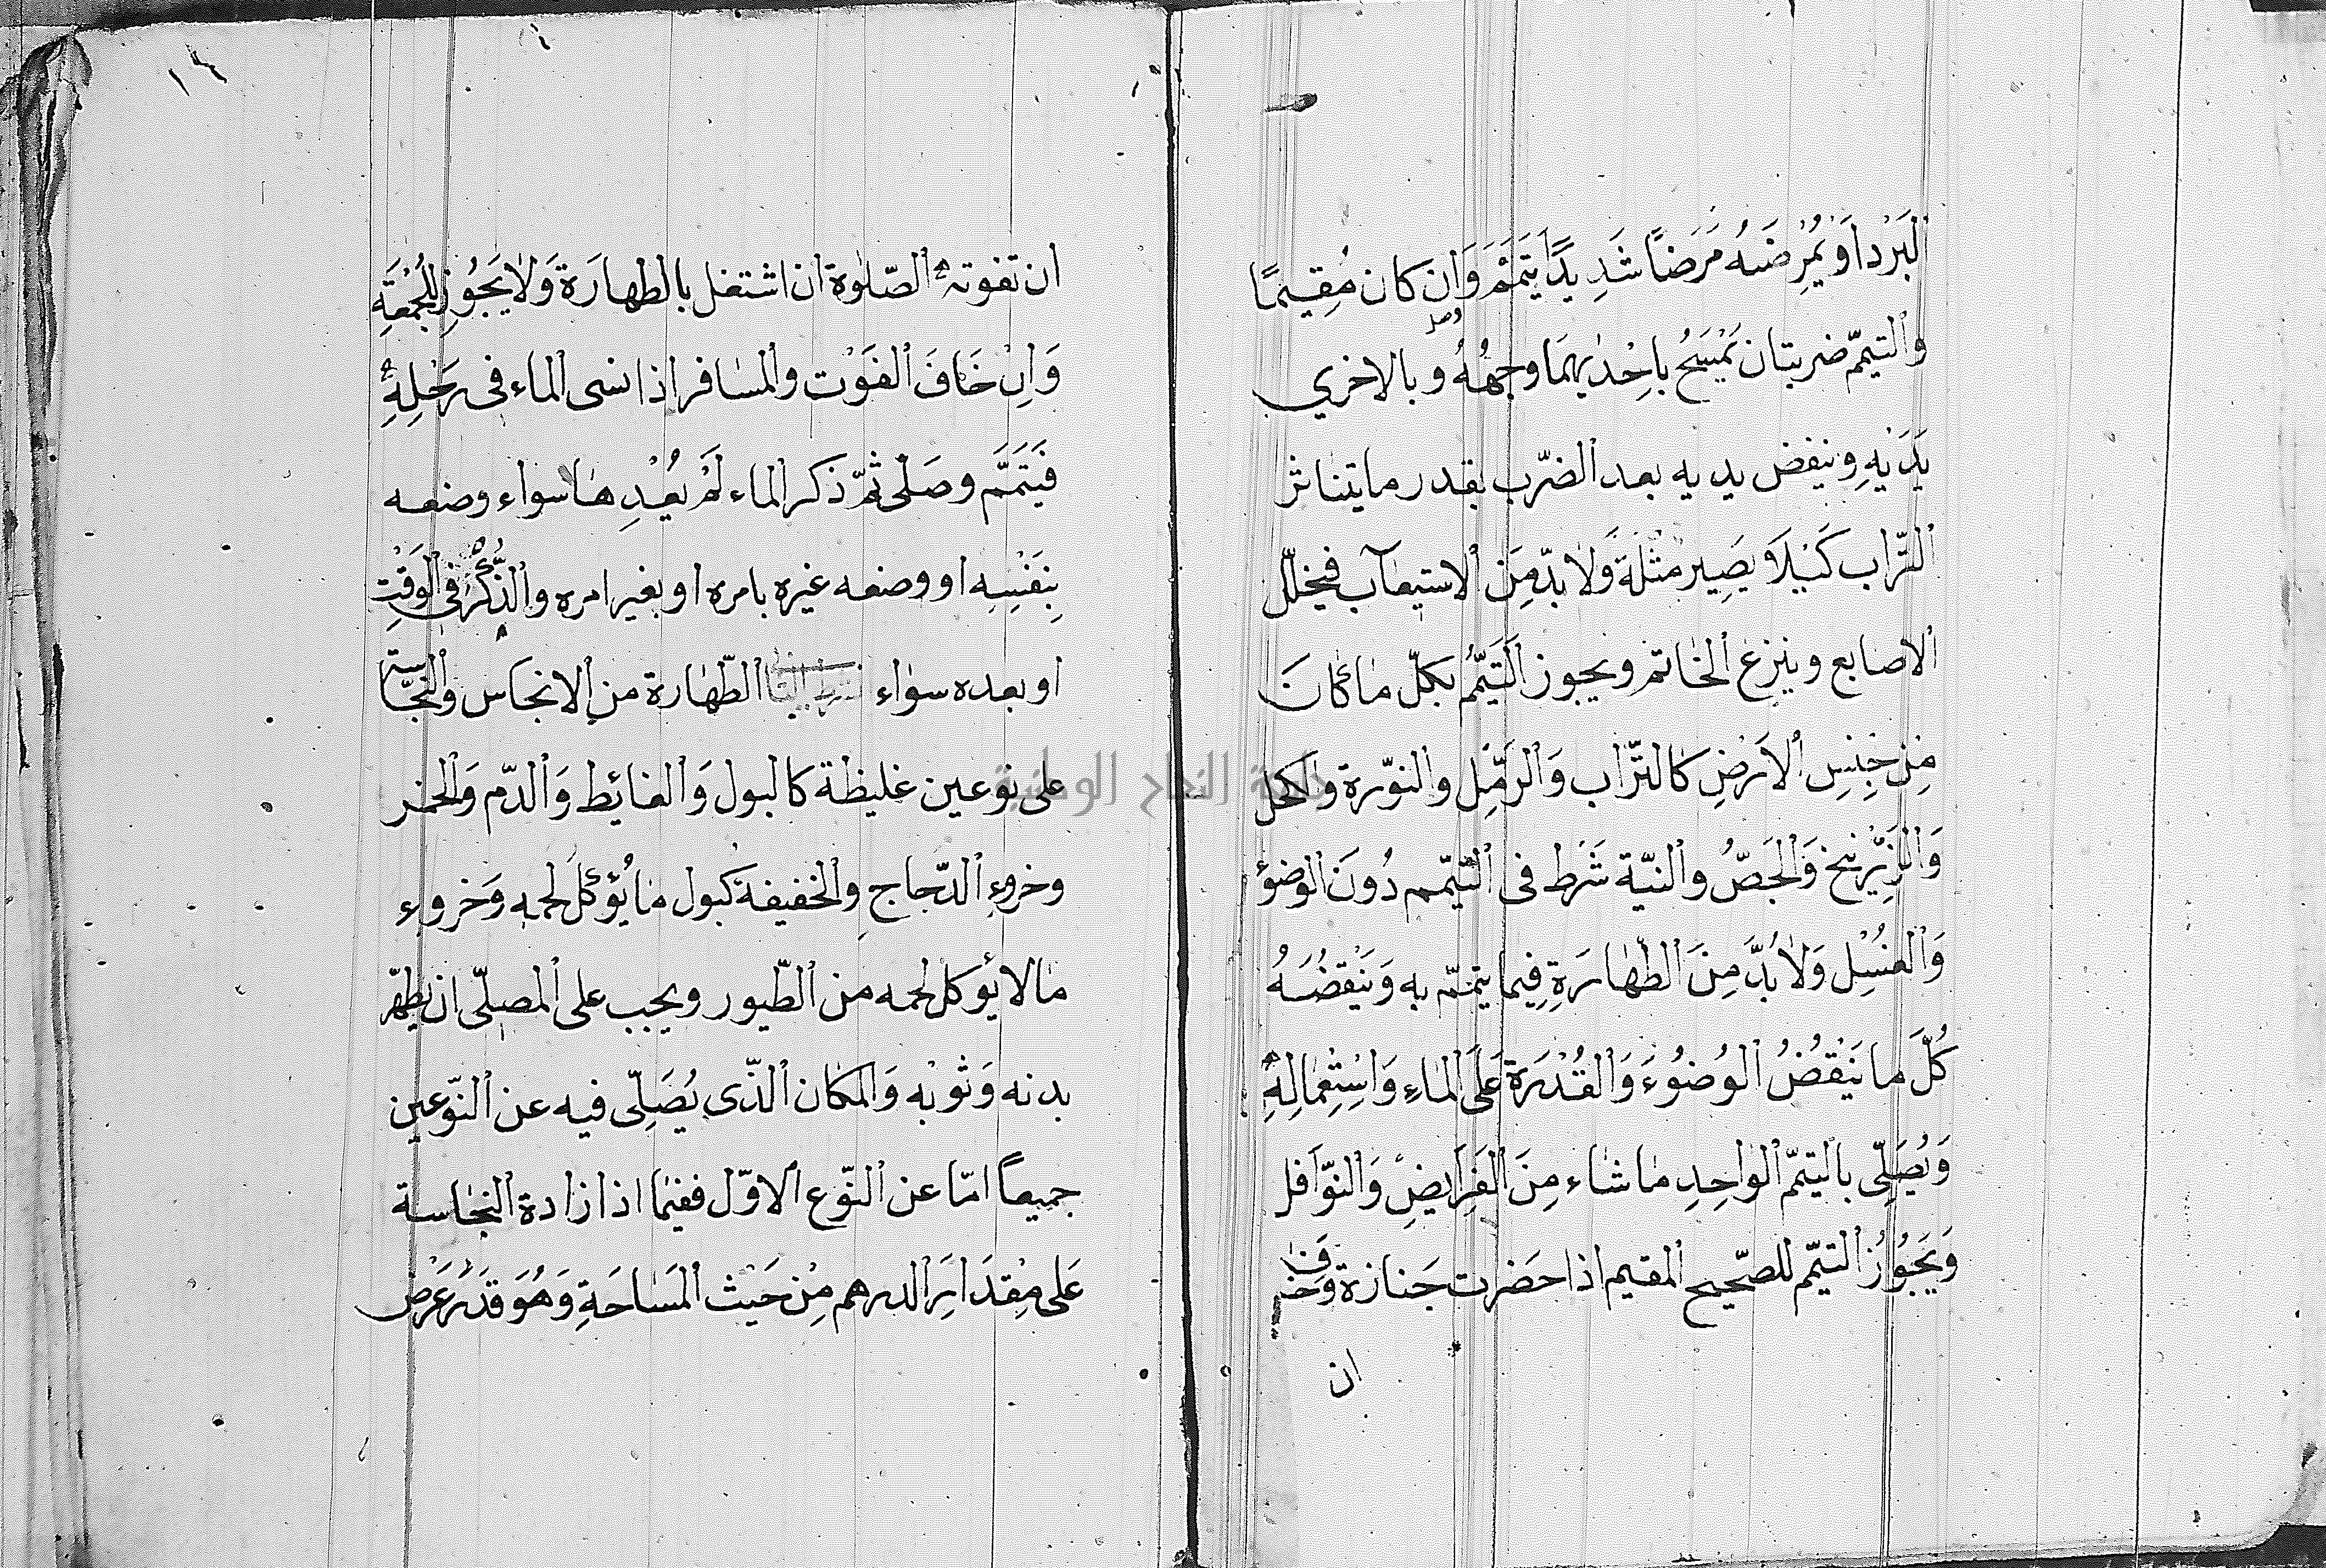 البَرْد اَوْ يُمْرِضَهُ مَرَضًا شَدِيدًا يَتَمَّمَ وَاِن كان مُقِيمًا
والتيمّم ضربتان يَمْسَحُ بِاِحْدٰيهمَا وجههُ وبالاخري
يَدَيْهِ وينفض يديه بعد الضّرب بقدر ما يتناثر
التّراب كَيْلَا يصِير مثْلَةً وَلا بدّ مِنَ الاستيعاب فيخلّل
الاصابع وينزع الخاتم ويجوز التَيَمُّم بكلّ ما كَانَ
مِنْ جِنْسِ الاَرْضِ كالتّراب وَالرَّمْلِ والنّورة والكحل
وَالزّرْنيخ وَالجَصّ والنيّة شَرْط فى التيمّم دُونَ الوضوء
وَالغسْلِ وَلا بُدَّ مِنَ الطّهارَةِ فِيما يتمّم به وَيَنْقضُهُ
كُلَّ ما يَنْقُضُ الوُضُوءَ وَالقُدْرَة عَلَى الماءِ وَاسْتِعْمالِهِ
وَيُصَلّى بالتيمّم الواحِدِ ما شاء مِنَ الفَرَايضِ وَالنوَّافل
وَيَجُوُزُ التيمّم للصّحيح المقيم اذا حضرت جَنازة وَخَاف
ان
١٤
ان تفوته الصّلوة ان اشتغل بالطهارَة وَلا يَجُوز لِلجُمْعَةِ
وَاِنْ خَافَ الفَوْت والمسافر اذا نسى الماء فى رَحْلِهِ
فَيَتَمَّم وصَلّى ثمّ ذكر الماء لَمْ يُعِدْ هاسواء وضعه
بِنَفْسِه او وضعه غيره بامره او بغير امره والذُّكْرُ فى الوَقْتِ
او بعده سواء الطّهارة من الانجاس والنّجاسة
على نوعين غليظة كالبول وَالغائط وَالدّم وَالخمر
وخروء الدّجاج والخفيفة كبول ما يُؤكل لحمه وَخروء
ما لا يؤكل لحمه من الطّيور ويجب على المصلّى ان يطهّر
بدنه وَثوبه وَالمكان الذّى يُصَلّى فيه عن النّوعين
جميعاً امّا عن النّوع الاوّل ففيما اذا زادة النجاسة
عَلى مِقدَارَ الدرهم مِنْ حَيْث المَسَاحَةِ وَهُوَ قَدَرُ عَرْض